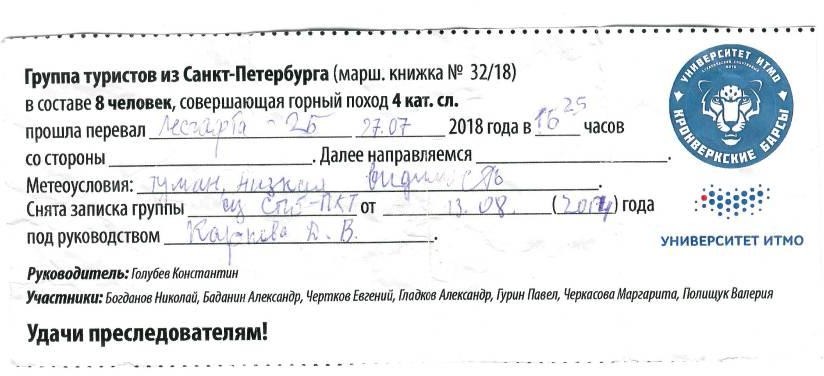 Группа туристов из Санкт-Петербурга (марш. книжка № 32/18)
в составе 8 человек, совершающая горный поход 4 кат. сл.
прошла перевал Лесгафта - 2Б 27.07 2018 года в 16 25 часов
со стороны . Далее направляемся .
Метеоусловия: туман, низкая видимость .
Снята записка группы из СПб-ПКТ от 13.08. (2014) года
под руководством Карпова А. В.
Руководитель: Голубев Константин
Участники: Богданов Николай, Баданин Александр, Чертков Евгений, Гладков Александр, Гурин Павел, Черкасова Маргарита, Полищук Валерия
Удачи преследователям!
УНИВЕРСИТЕТ ИТМО
КРОНВЕРКСКИЕ БАРСЫ
УНИВЕРСИТЕТ ИТМО